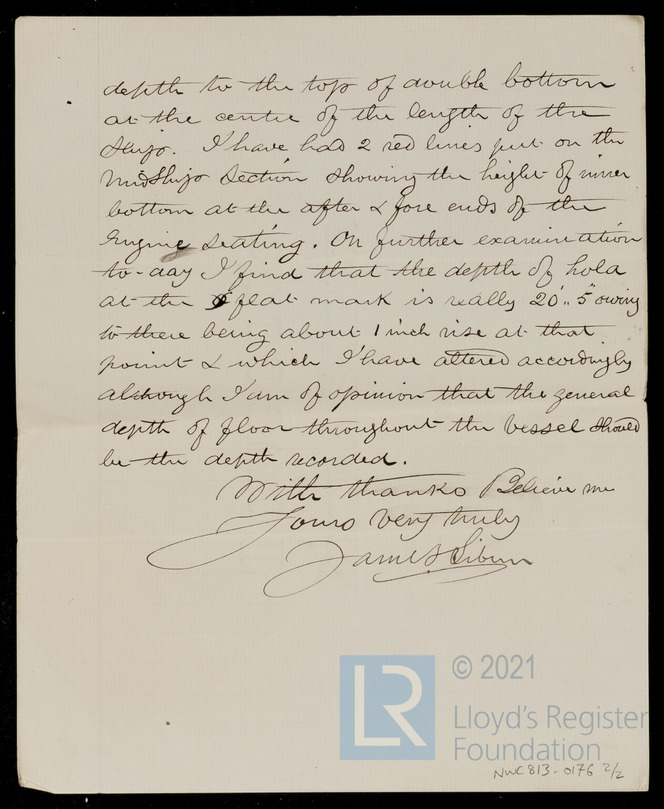 depth to the top of double bottom
at the centre of the length of the
Ship. I have had 2 red lines put on the
MidShip Section showing the height of inner
bottom at the after & fore ends of the
Engine Seating. On further examination
to-day I find that the depth of hold
at the flat mark is really 20'..5" owing
to there being about 1 inch rise at that
point & which I have altered accordingly
although I am of opinion that the general
depth of floor throughout the Vessel should
be the depth recorded.
With thanks Believe me
Yours very truly
James
LR
© 2021
Lloyd's Register
Foundation
NWC813-0176 2/2